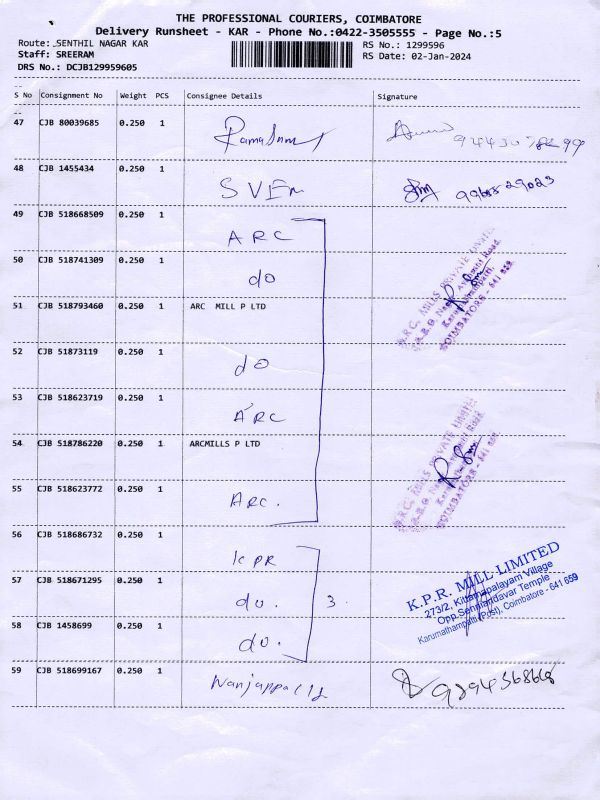 THE PROFESSIONAL COURIERS, COIMBATORE
Delivery Runsheet - KAR - Phone No.:0422-3505555 - Page No.:5
Route: SENTHIL NAGAR KAR
RS No.: 1299596
Staff: SREERAM
RS Date: 02-Jan-2024
DRS No.: DCJB129959605
S No Consignment No Weight PCS Consignee Details Signature
47 CJB 80039685 0.250 1
48 CJB 1455434 0.250 1
49 CJB 518668509 0.250 1 ARC
50 CJB 518741309 0.250 1 do
51 CJB 518793460 0.250 1 ARC MILL P LTD
A.R.C. MILLS PRIVATE LIMITED
COIMBATORE - 641 659
52 CJB 51873119 0.250 1 do
53 CJB 518623719 0.250 1 ARC
54 CJB 518786220 0.250 1 ARCMILLS P LTD
A.R.C. MILLS PRIVATE LIMITED
COIMBATORE - 641 659
55 CJB 518623772 0.250 1 ARC.
56 CJB 518686732 0.250 1 KPR
57 CJB 518671295 0.250 1 do. 3
58 CJB 1458699 0.250 1 do.
K.P.R. MILL LIMITED
273/2, Kittampalayam Village
Opp.Senniandavar Temple
Karumathampatti (Post), Coimbatore - 641 659
59 CJB 518699167 0.250 1